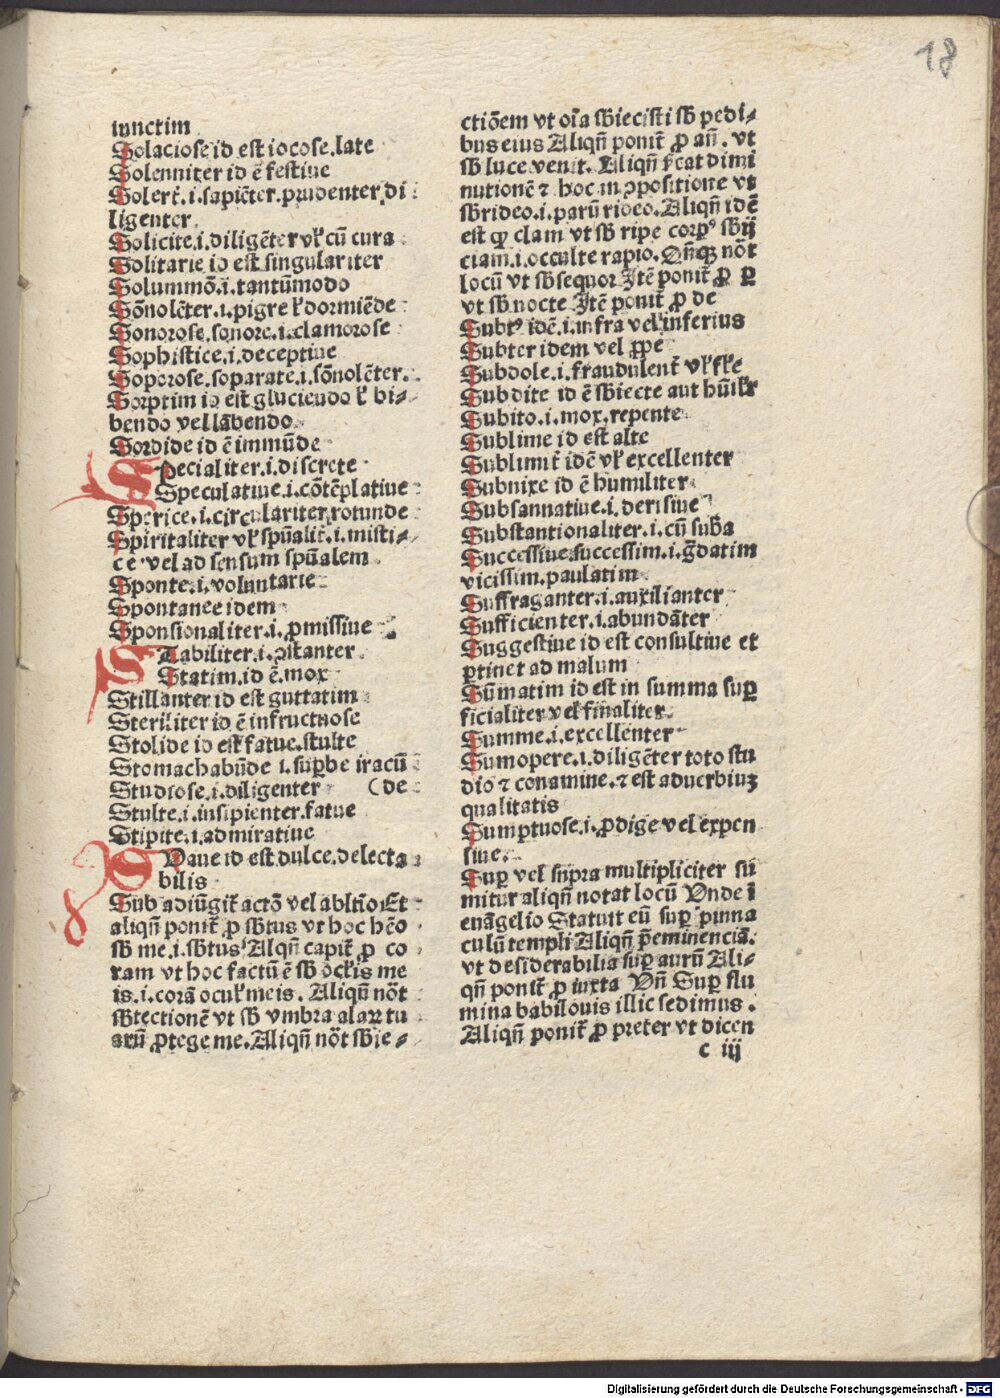 18
iunctim
Solaciose id est iocose.late
Solenniter id ē festiue
Solert̄.i.sapiēter.prudenter.di
ligenter
Solicite.i.diligēter vꝉ cū cura
Solitarie id est singulariter
Solummō.i.tantūmodo
Sōnolēter.i.pigre ꝉ dormiēde
Sonorose.sonore.i.clamorose
Sophistice.i.deceptiue
Soporose.soparate.i.sōnolēter.
Sorptim id est gluciendo ꝉ bi-
bendo vel labendo
Sordide id ē immūde
Specialiter.i.discrete
Speculatiue.i.cōtēplatiue
Sperice.i.circulariter.rotunde
Spiritaliter vꝉ spūalit̄.i.misti-
ce vel ad sensum spūalem
Sponte.i.voluntarie
Spontanee idem
Sponsionaliter.i.ꝓmissiue
STabiliter.i.ꝯstanter
Statim.id ē.mox
Stillanter id est guttatim
Steriliter id ē infructuose
Stolide id est fatue.stulte
Stomachabūde i.suꝑbe iracū
Studiose.i.diligenter (de
Stulte.i.insipienter.fatue
Stipite.i.admiratiue
SUaue id est dulce.delecta
bilis
Sub adiūgit̄ actō vel abltīo Et
aliqn̄ ponit̄ ꝓ sbtus vt hoc hēo
sb me.i.sbtus Alqn̄ capit̄ ꝓ co
ram vt hoc factū ē sb ocꝉis me
is.i.corā ocuꝉ meis. Aliqn̄ nōt
sbtectionē vt sb vmbra alaꝝ tu
arū ꝓtege me.Aliqn̄ nōt sbie-
ctiōem vt oīa sbiecisti sb pedi-
bus eius Aliqn̄ ponit̄ ꝓ an̄. vt
sb luce venit. Aliqn̄ fcat dimi
nutionē ⁊ hoc in ꝯpositione vt
sbrideo.i.parū rideo.Aliqn̄ idē
est qꝫ clam vt sb ripe corpꝰ sbij
ciam.i.occulte rapio. Qn̄qꝫ nōt
locū vt sbsequor Itē ponit̄ ꝓ ꝑ
vt sb nocte Itē ponit̄ ꝓ de
Subtꝰ idē.i.infra vel inferius
Subter idem vel ꝓpe
Subdole.i.fraudulent̄ vꝉ fꝉe
Subdite id ē sbiecte aut hūiꝉr
Subito.i.mox.repente
Sublime id est alte
Sublimit̄ idē vꝉ excellenter
Subnixe id ē humiliter
Subsannatiue.i.derisiue
Substantionaliter.i.cū suba
Successiue.successim.i.gdatim
vicissim.paulatim
Suffraganter.i.auxilianter
Sufficienter.i.abundāter
Suggestiue id est consultiue et
ꝑtinet ad malum
Sūmatim id est in summa suꝑ
ficialiter vel finaliter
Summe.i.excellenter
Sumopere.i.diligēter toto stu
dio ⁊ conamine.⁊ est aduerbiuꝫ
qualitatis
Sumptuose.i.ꝓdige vel expen
siue.
Suꝑ vel supra multipliciter sū
mitur aliqn̄ notat locū Vnde ī
euāgelio Statuit eū suꝑ pinna
culū templi Aliqn̄ p̄eminenciā.
vt desiderabilia suꝑ aurū Ali-
qn̄ ponit̄ ꝓ iuxta Vn̄ Suꝑ flu
mina babilouis illic sedimus.
Aliqn̄ ponit̄ ꝓ preter vt dicen
c iij
Digitalisierung gefördert durch die Deutsche Forschungsgemeinschaft - DFG